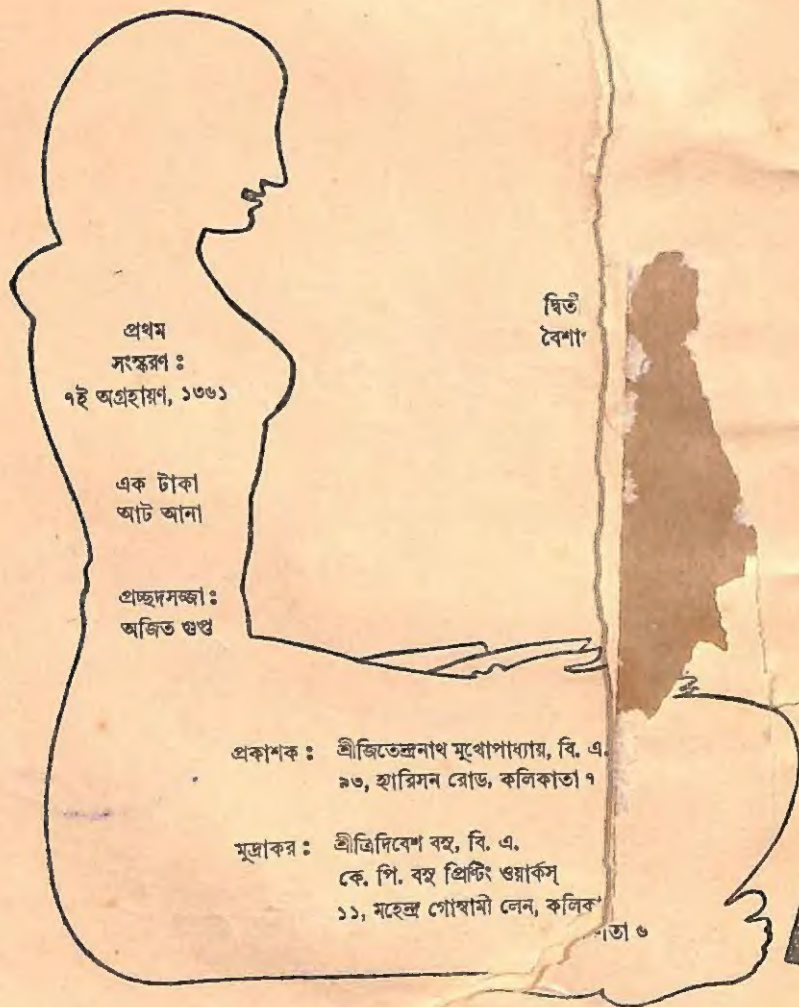 প্রথম
সংস্করণ :
৭ই অগ্রহায়ণ, ১৩৬১
এক টাকা
আট আনা
প্রচ্ছদসজ্জা :
অজিত গুপ্ত
দ্বিতী
বৈশা
প্রকাশক : শ্রীজিতেন্দ্রনাথ মুখোপাধ্যায়, বি. এ.
৯৩, হ্যারিসন রোড, কলিকাতা ৭
মুদ্রাকর : শ্রীত্রিদিবেশ বসু, বি. এ.
কে. পি. বসু প্রিন্টিং ওয়ার্কস্
১১, মহেন্দ্র গোস্বামী লেন, কলিকাতা ৬